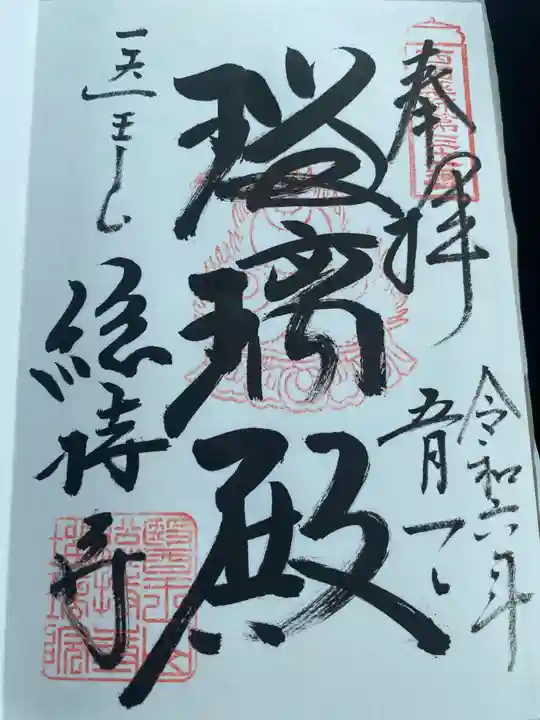 奉拝
令和六年
五月一日
瑠璃殿
医王山
総持寺